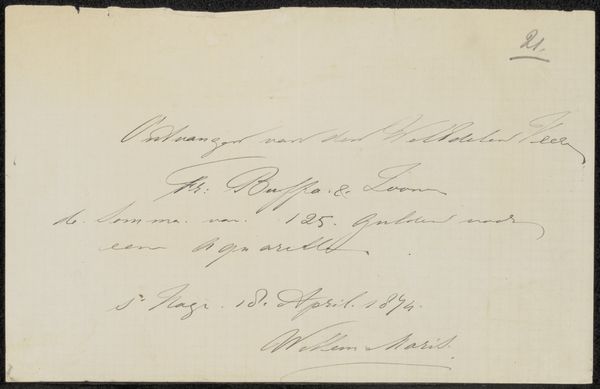 21.
Ontvangen van den WelEdelen Heer
Fr. Buffa & Zoonen
de Somma van 125 gulden voor
een Aquarelle
s' Hage 18 April 1874.
Willem Maris.